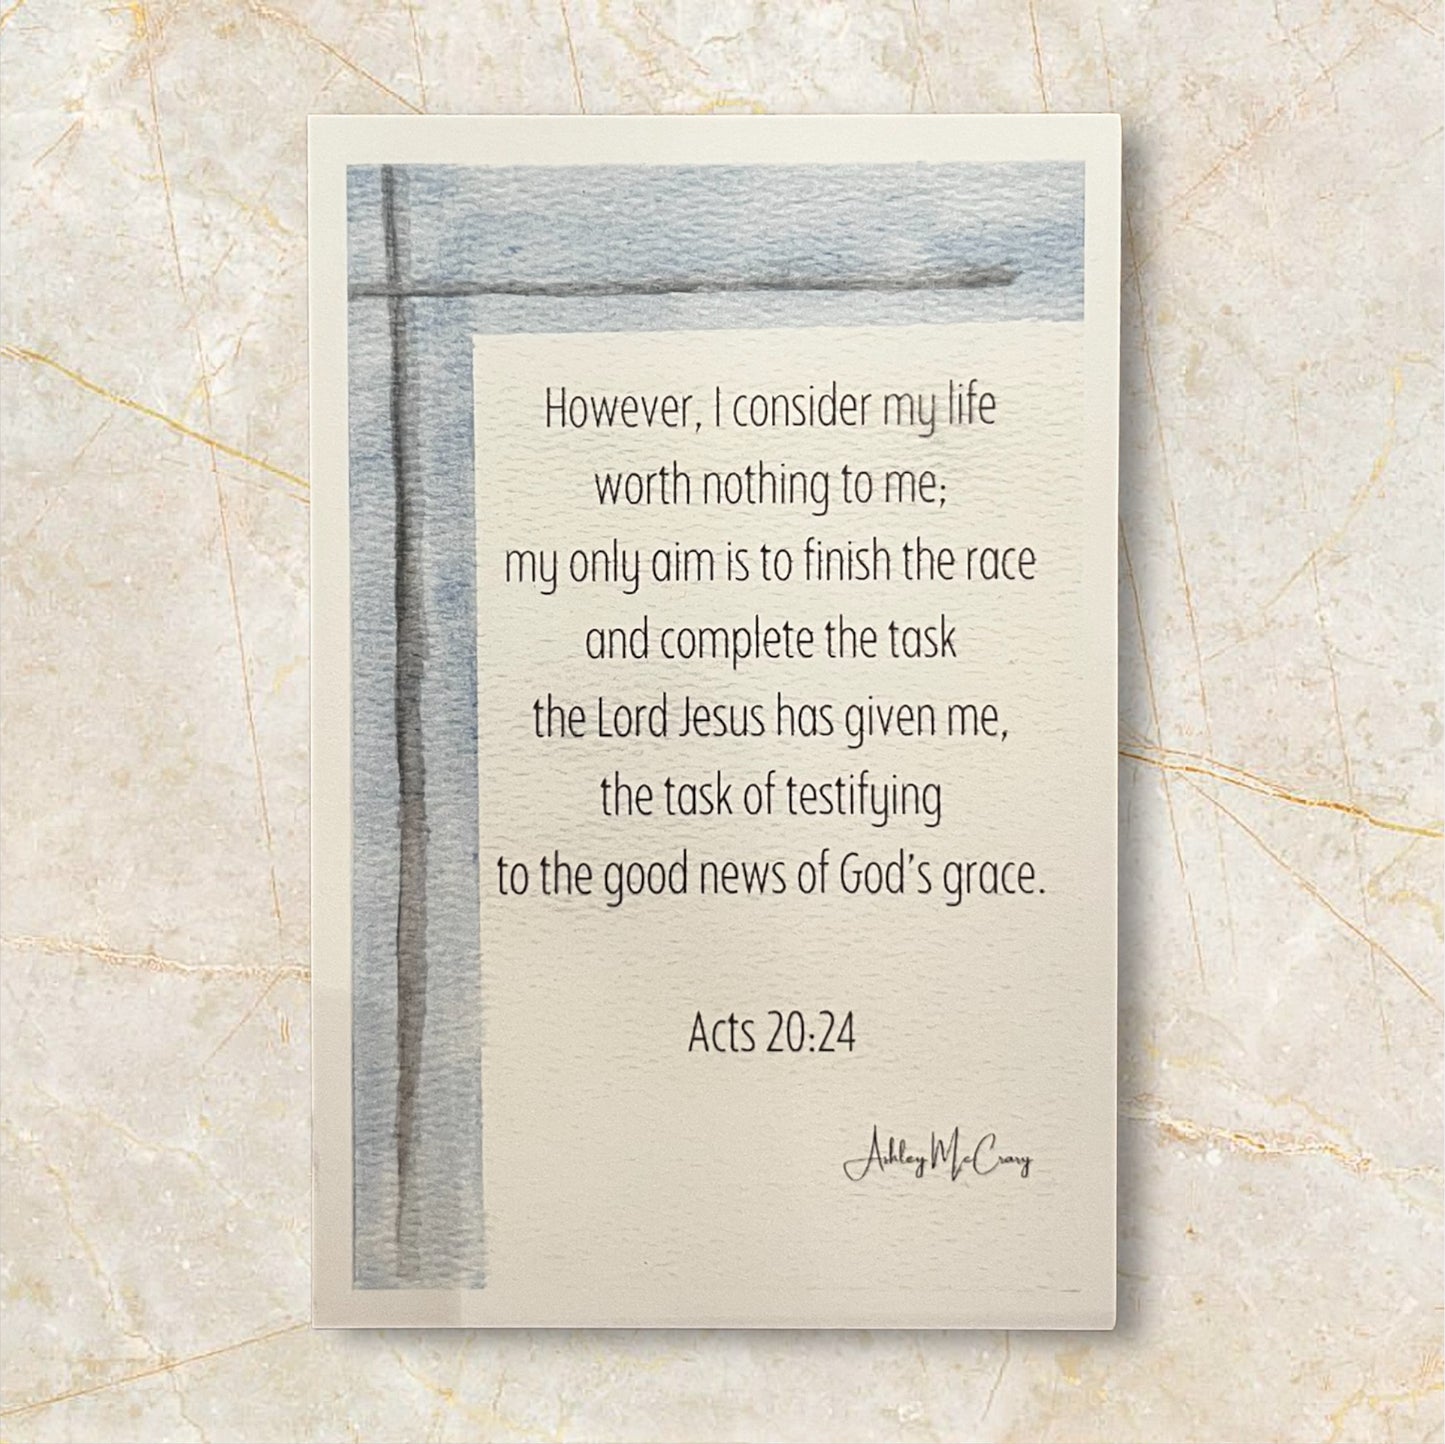 However, I consider my life
worth nothing to me;
my only aim is to finish the race
and complete the task
the Lord Jesus has given me,
the task of testifying
to the good news of God's grace.
Acts 20:24
Ashley McCrary